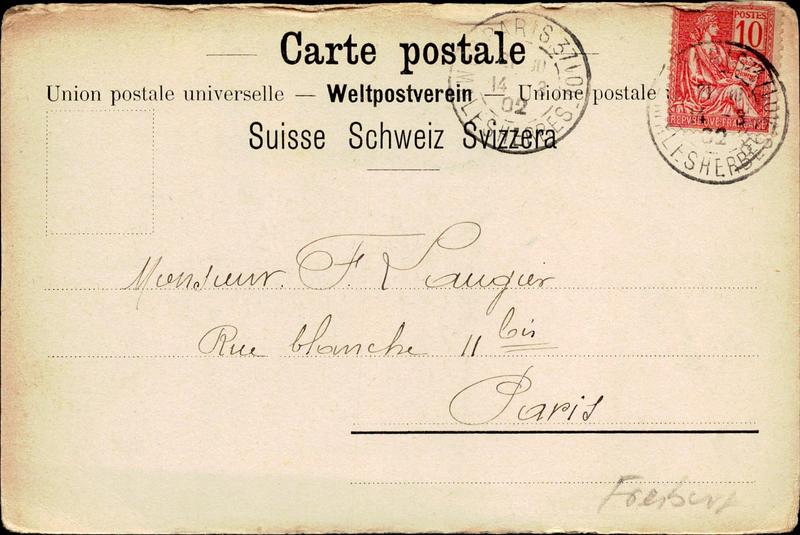 Carte postale
Union postale universelle — Weltpostverein — Unione postale
Suisse Schweiz Svizzera
POSTES
10
REPUBLIQUE FRANCAISE
PARIS 37
14
02
MALESHERBES
02
MALESHERBES
Monsieur. F. Laugier
Rue blanche 11 bis
Paris
Freiburg